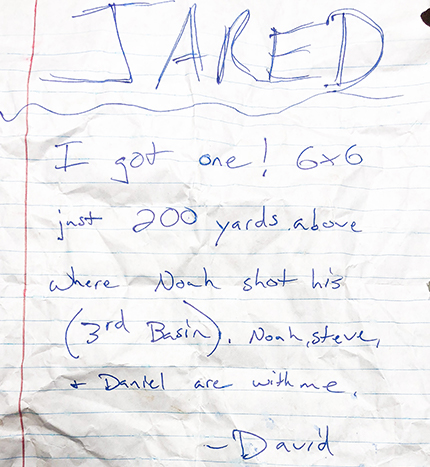 JARED
I got one! 6x6
just 200 yards above
where Noah shot his
(3rd Basin). Noah, Steve,
+ Daniel are with me.
- David